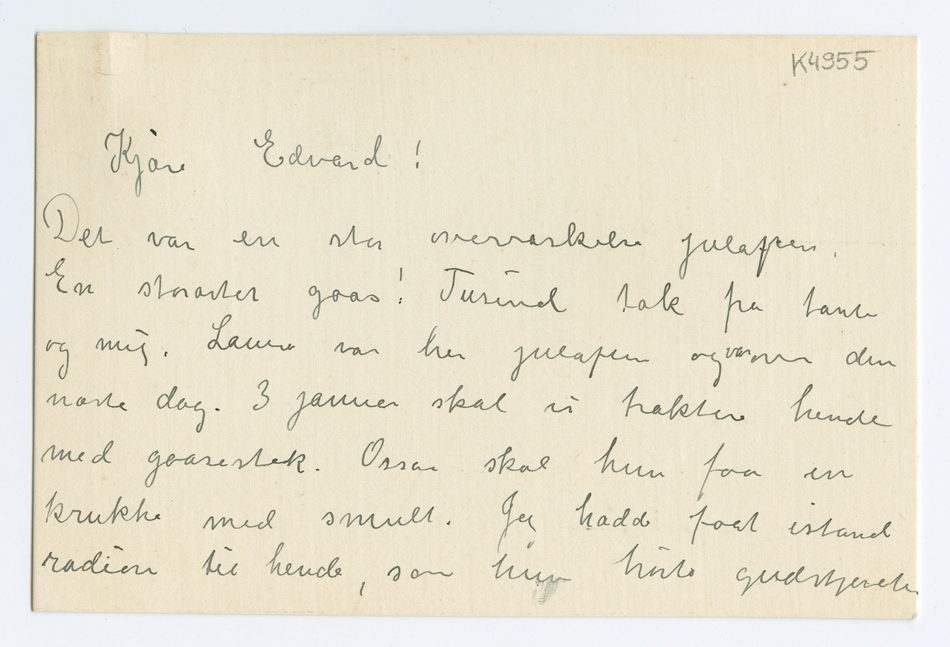 K4955
Kjære Edvard!
Det var en stor overraskelse julaften.
En storartet gaas! Tusind tak fra tante
og mig. Laura var her julaften og var over den
næste dag. 3 januar skal vi traktere hende
med gaasestek. Ossaa skal hun faa en
krukke med smult. Jeg hadde faat istand
radioen til hende, saa hun hørte gudstjeneste